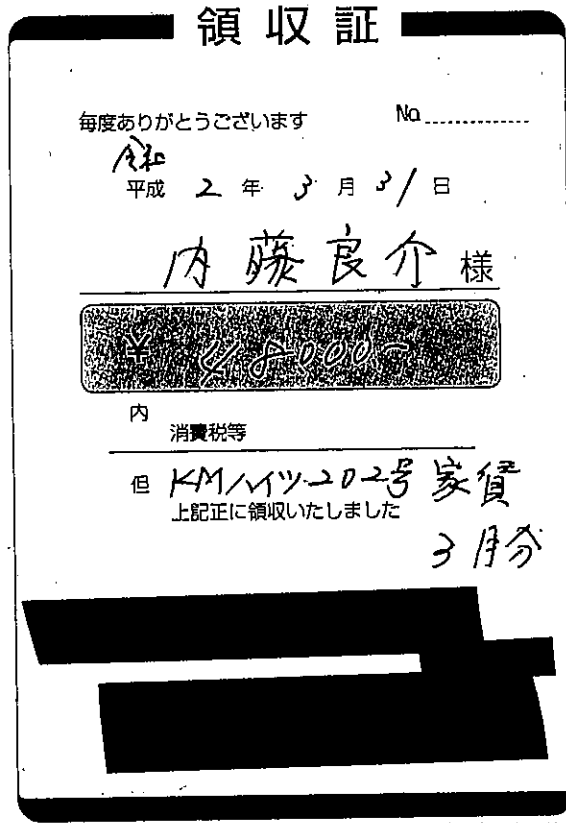 領収証
毎度ありがとうございます No
令和
平成 2 年 3 月 31 日
内藤良介 様
¥ 48,000-
内
消費税等
但 KMハイツ202号 家賃
上記正に領収いたしました
3月分